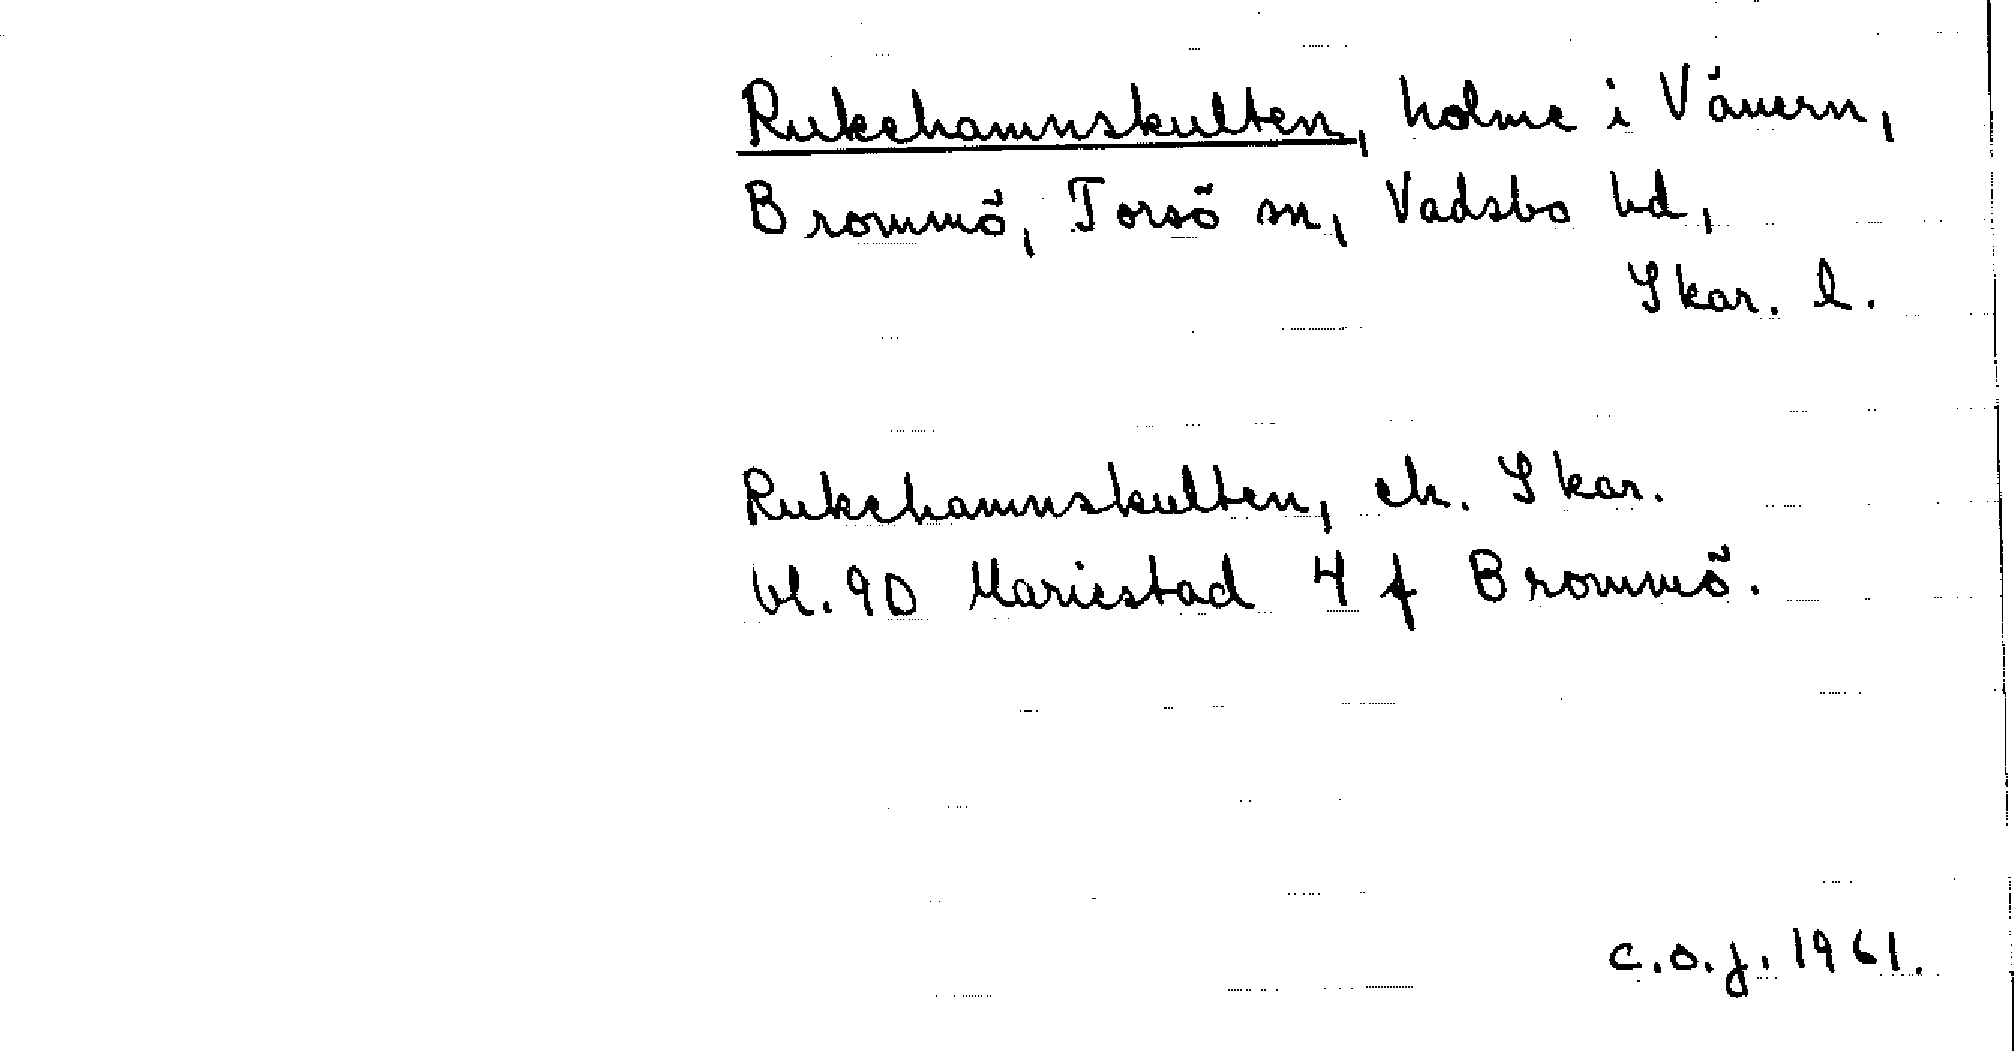 Rukehamnskulten, holme i Vänern,
Brommö, Torsö sn, Vadsbo hd,
Skar. l.
Rukehamnskulten, ek. Skar.
bl. 9D Mariestad 4 f Brommö.
C.O.J. 1961.